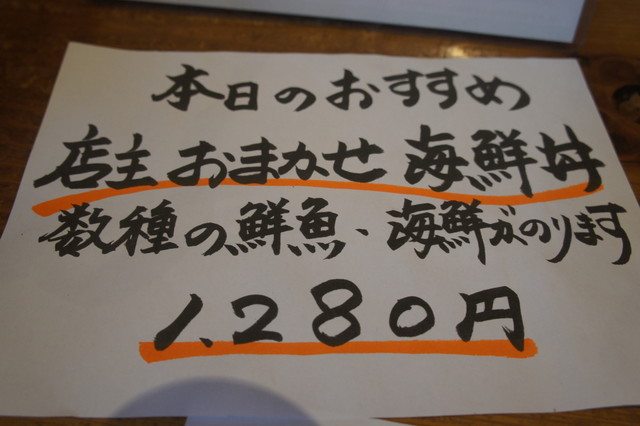 本日のおすすめ
店主おまかせ海鮮丼
数種の鮮魚、海鮮がのります
1,280円